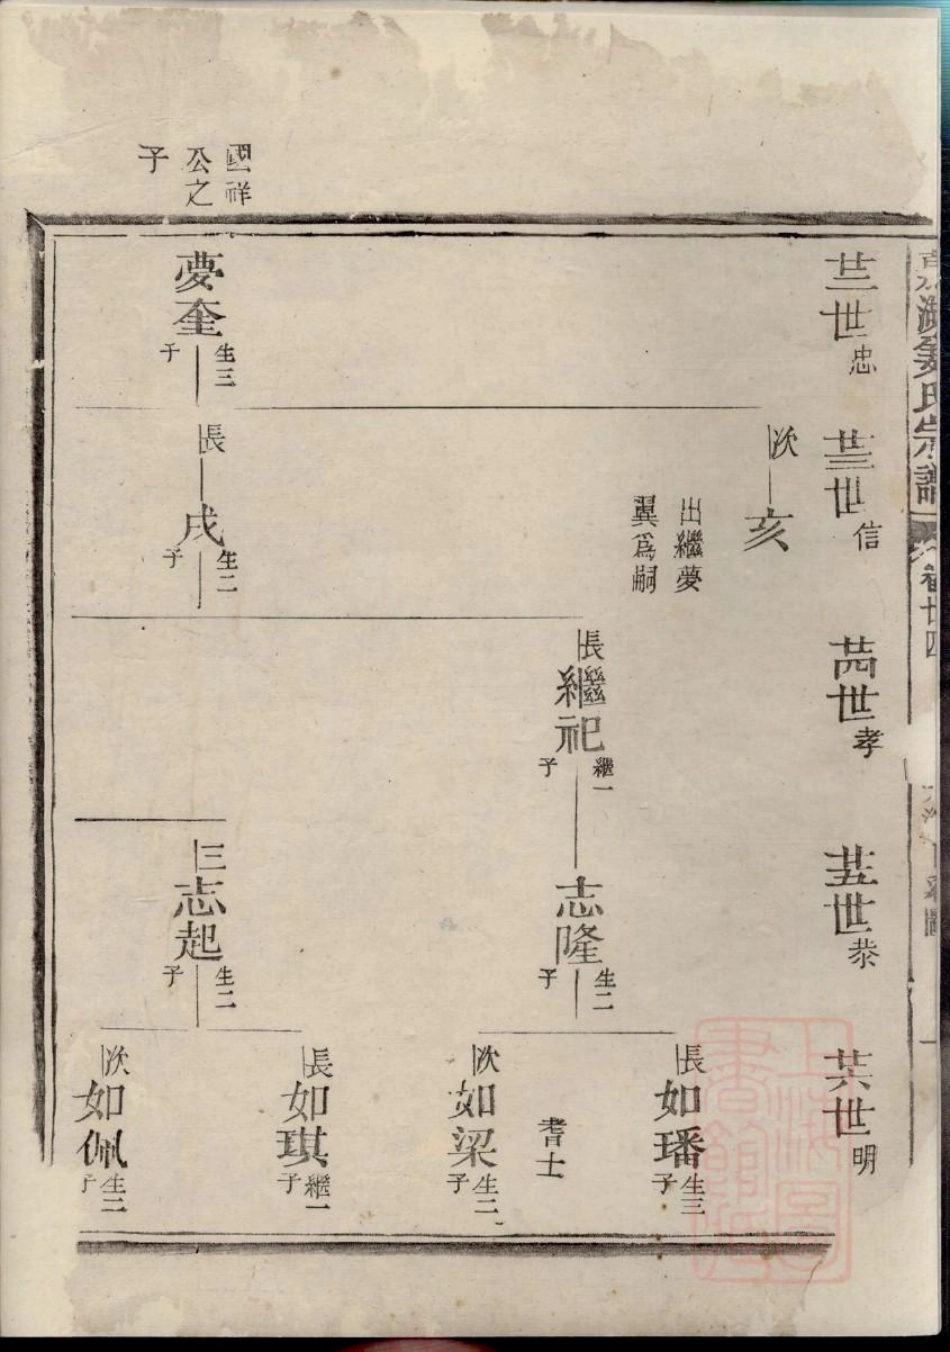 國祥
公之
子
廿二世忠
廿三世信
廿四世孝
廿五世恭
廿六世明
夢奎
生三
子
次
亥
出繼夢
翼爲嗣
長
戌
生二
子
長
繼祀
繼一
子
志隆
生二
子
三
志起
生二
子
長
如璠
生三
子
耆士
次
如梁
生二
子
長
如琪
繼一
子
次
如佩
生二
子
姜氏宗譜
卷廿四